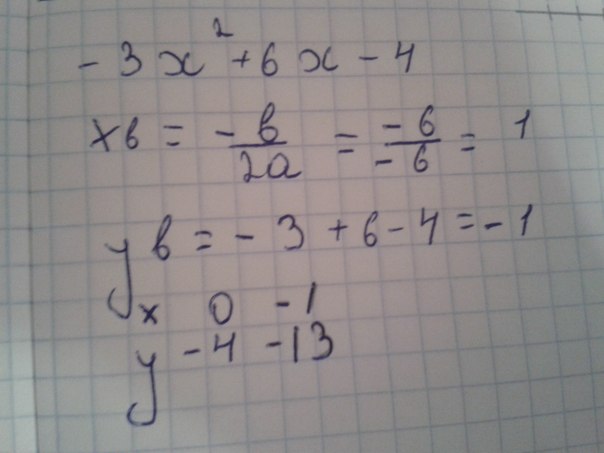 - 3x² + 6x - 4
xв = -в/2a = -6/-6 = 1
yв = - 3 + 6 - 4 = - 1
x 0 -1
y -4 -13